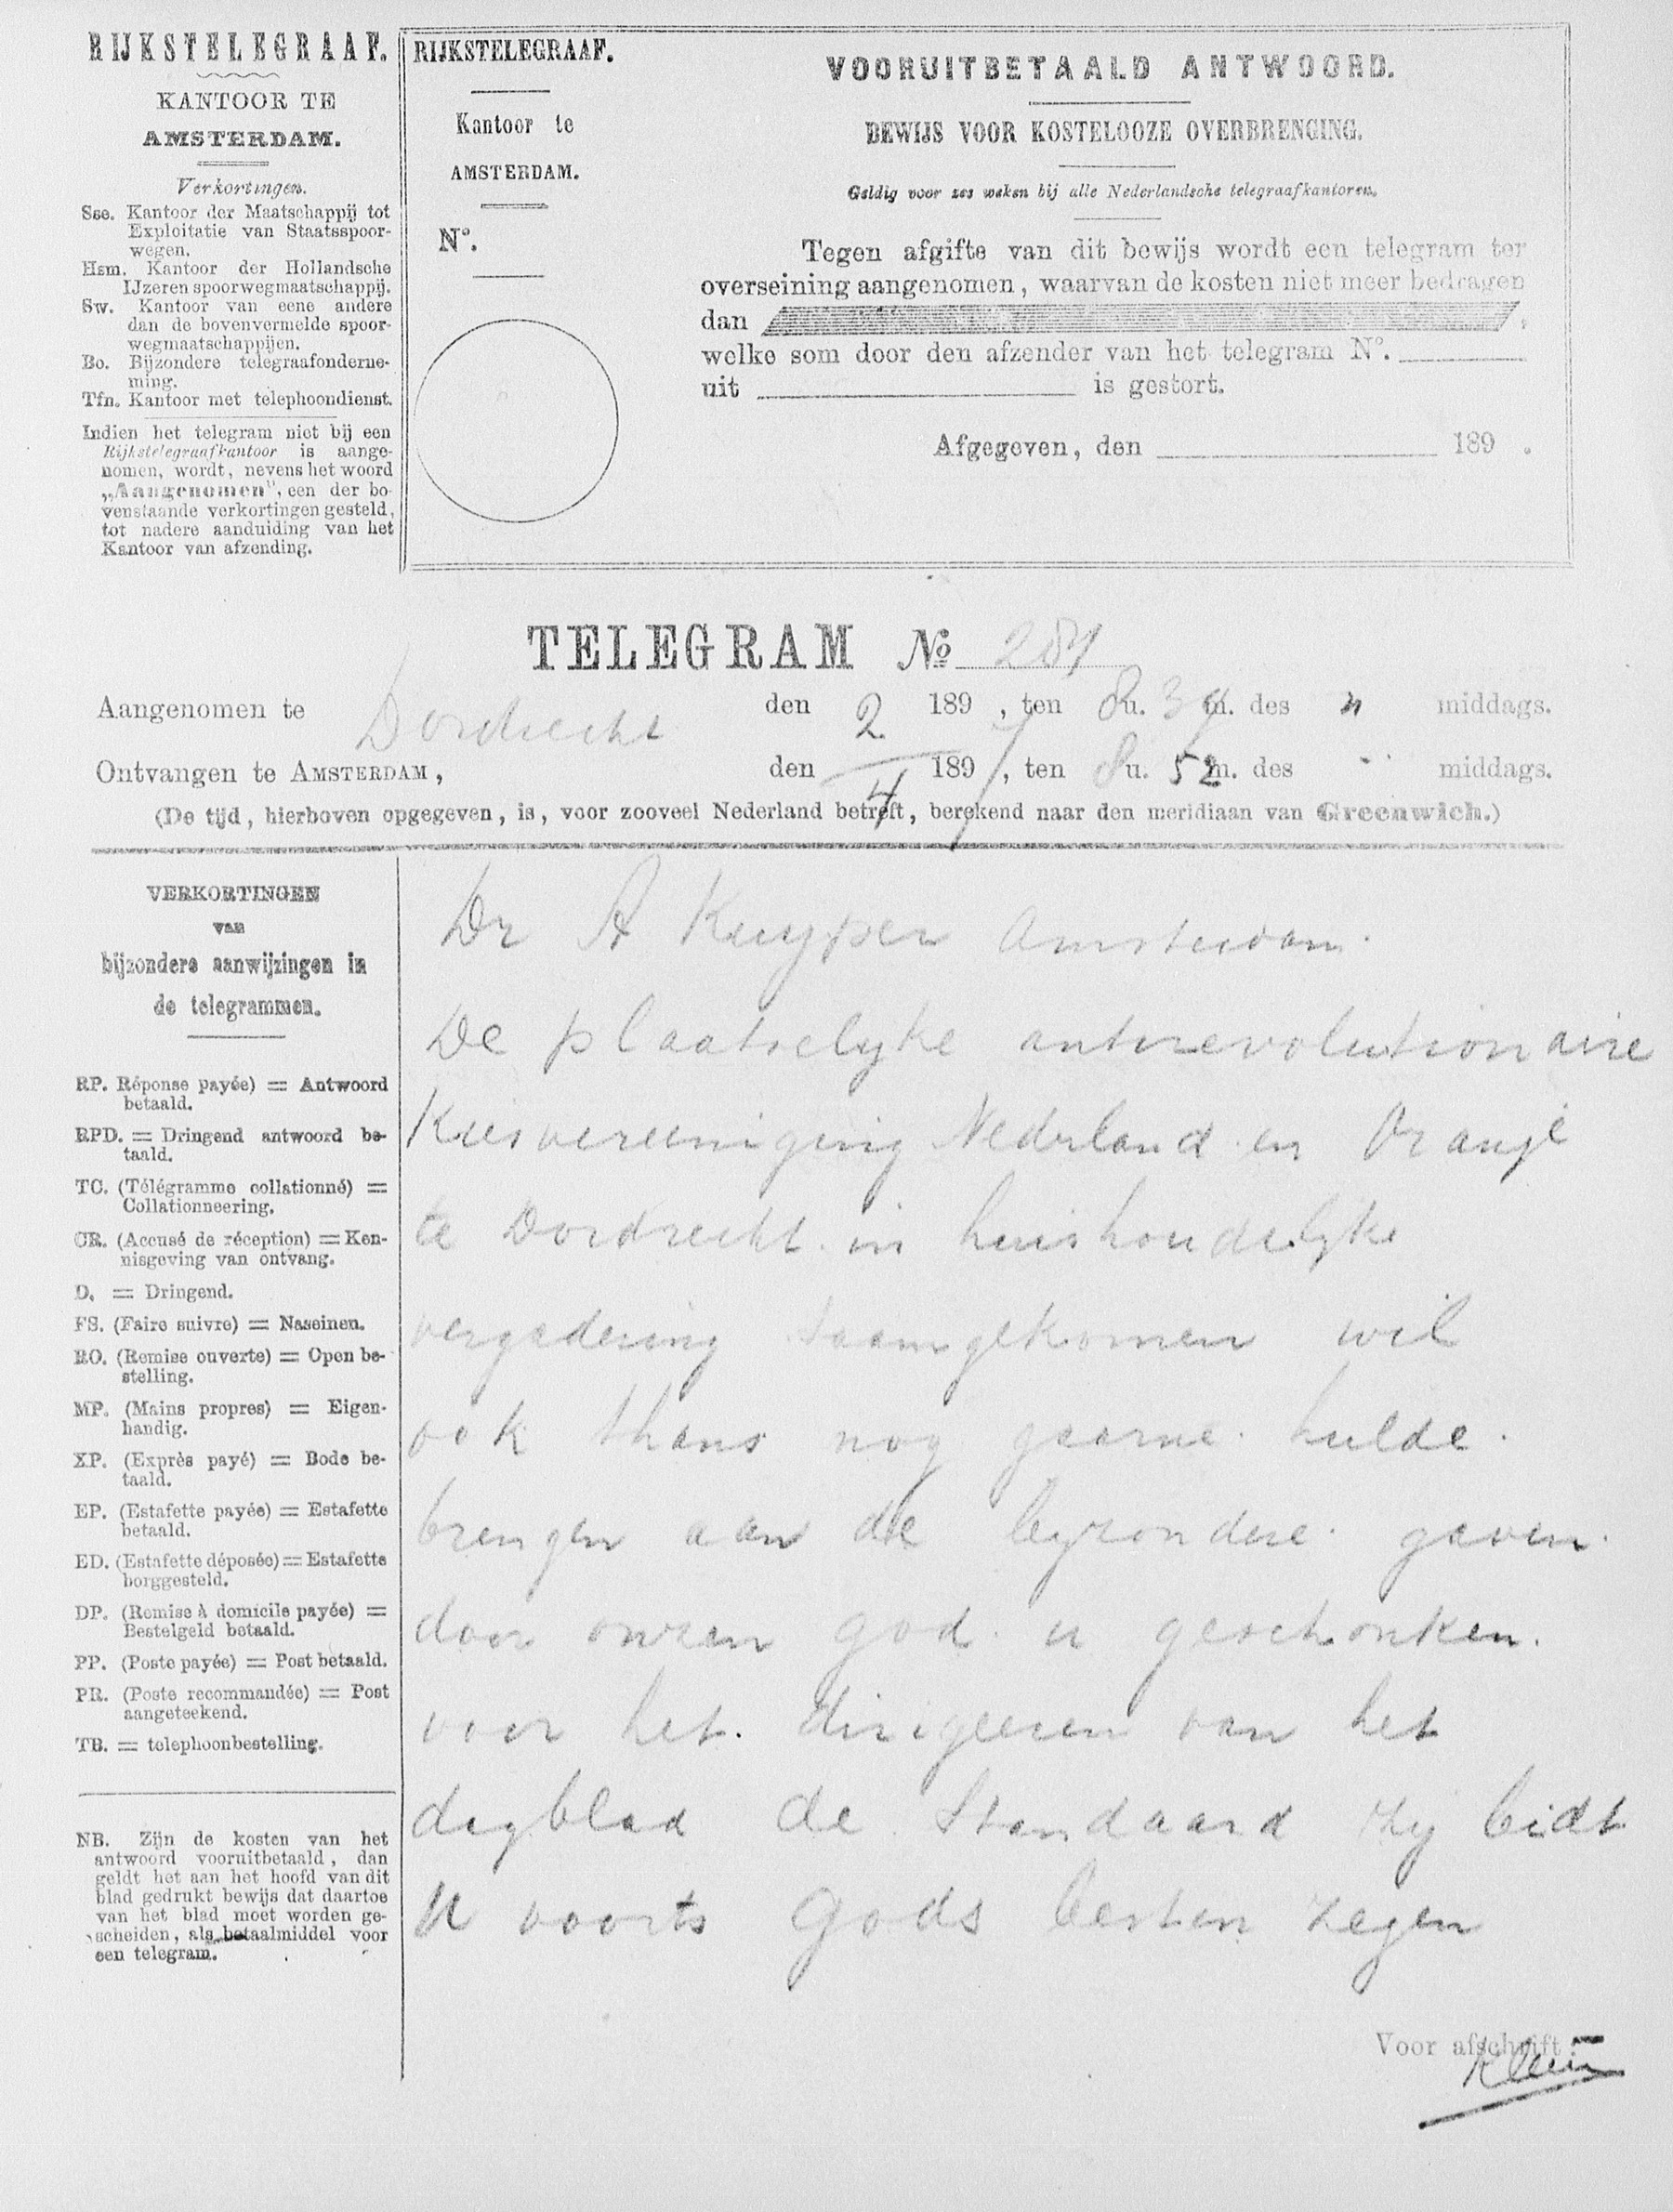 RIJKSTELEGRAAF.
KANTOOR TE
AMSTERDAM.
Verkortingen.
Sse. Kantoor der Maatschappij tot
Exploitatie van Staatsspoor-
wegen.
Hsm. Kantoor der Hollandsche
IJzeren spoorwegmaatschappij.
Sw. Kantoor van eene andere
dan de bovenvermelde spoor-
wegmaatschappijen.
Bo. Bijzondere telegraafonderne-
ming.
Tfn. Kantoor met telephoondienst.
Indien het telegram niet bij een
Rijkstelegraafkantoor is aange-
nomen, wordt, nevens het woord
„Aangenomen", een der bo-
venstaande verkortingen gesteld,
tot nadere aanduiding van het
Kantoor van afzending.
RIJKSTELEGRAAF.
Kantoor te
AMSTERDAM.
N°.
VOORUITBETAALD ANTWOORD.
BEWIJS VOOR KOSTELOOZE OVERBRENGING.
Geldig voor zes weken bij alle Nederlandsche telegraafkantoren.
Tegen afgifte van dit bewijs wordt een telegram ter
overseining aangenomen, waarvan de kosten niet meer bedragen
dan
welke som door den afzender van het telegram N°.
uit is gestort.
Afgegeven, den 189 .
TELEGRAM No 287
Aangenomen te Dordrecht den 2 189 , ten 8 u. 39 m. des " middags.
Ontvangen te AMSTERDAM, den 4 189 7, ten 8 u. 52 m. des " middags.
(De tijd, hierboven opgegeven, is, voor zooveel Nederland betreft, berekend naar den meridiaan van Greenwich.)
VERKORTINGEN
van
bijzondere aanwijzingen in
de telegrammen.
RP. Réponse payée) = Antwoord
betaald.
RPD. = Dringend antwoord be-
taald.
TC. (Télégramme collationné) =
Collationneering.
CR. (Accusé de réception) = Ken-
nisgeving van ontvang.
D. = Dringend.
FS. (Faire suivre) = Naseinen.
RO. (Remise ouverte) = Open be-
stelling.
MP. (Mains propres) = Eigen-
handig.
XP. (Exprès payé) = Bode be-
taald.
EP. (Estafette payée) = Estafette
betaald.
ED. (Estafette déposée) = Estafette
borggesteld.
DP. (Remise à domicile payée) =
Bestelgeld betaald.
PP. (Poste payée) = Post betaald.
PR. (Poste recommandée) = Post
aangeteekend.
TB. = telephoonbestelling.
NB. Zijn de kosten van het
antwoord vooruitbetaald, dan
geldt het aan het hoofd van dit
blad gedrukt bewijs dat daartoe
van het blad moet worden ge-
scheiden, als betaalmiddel voor
een telegram.
Dr A Kuyper Amsterdam.
De plaatselyke antirevolutionaire
Kiesvereeniging Nederland en Oranje
te Dordrecht in huishoudelyke
vergadering saamgekomen wil
ook thans nog gaarne hulde
brengen aan de byzondere gaven
door onzen god u geschonken.
voor het dirigeeren van het
dagblad de Standaard Zy bidt
U voorts Gods besten zegen
Voor afschrift:
Klein